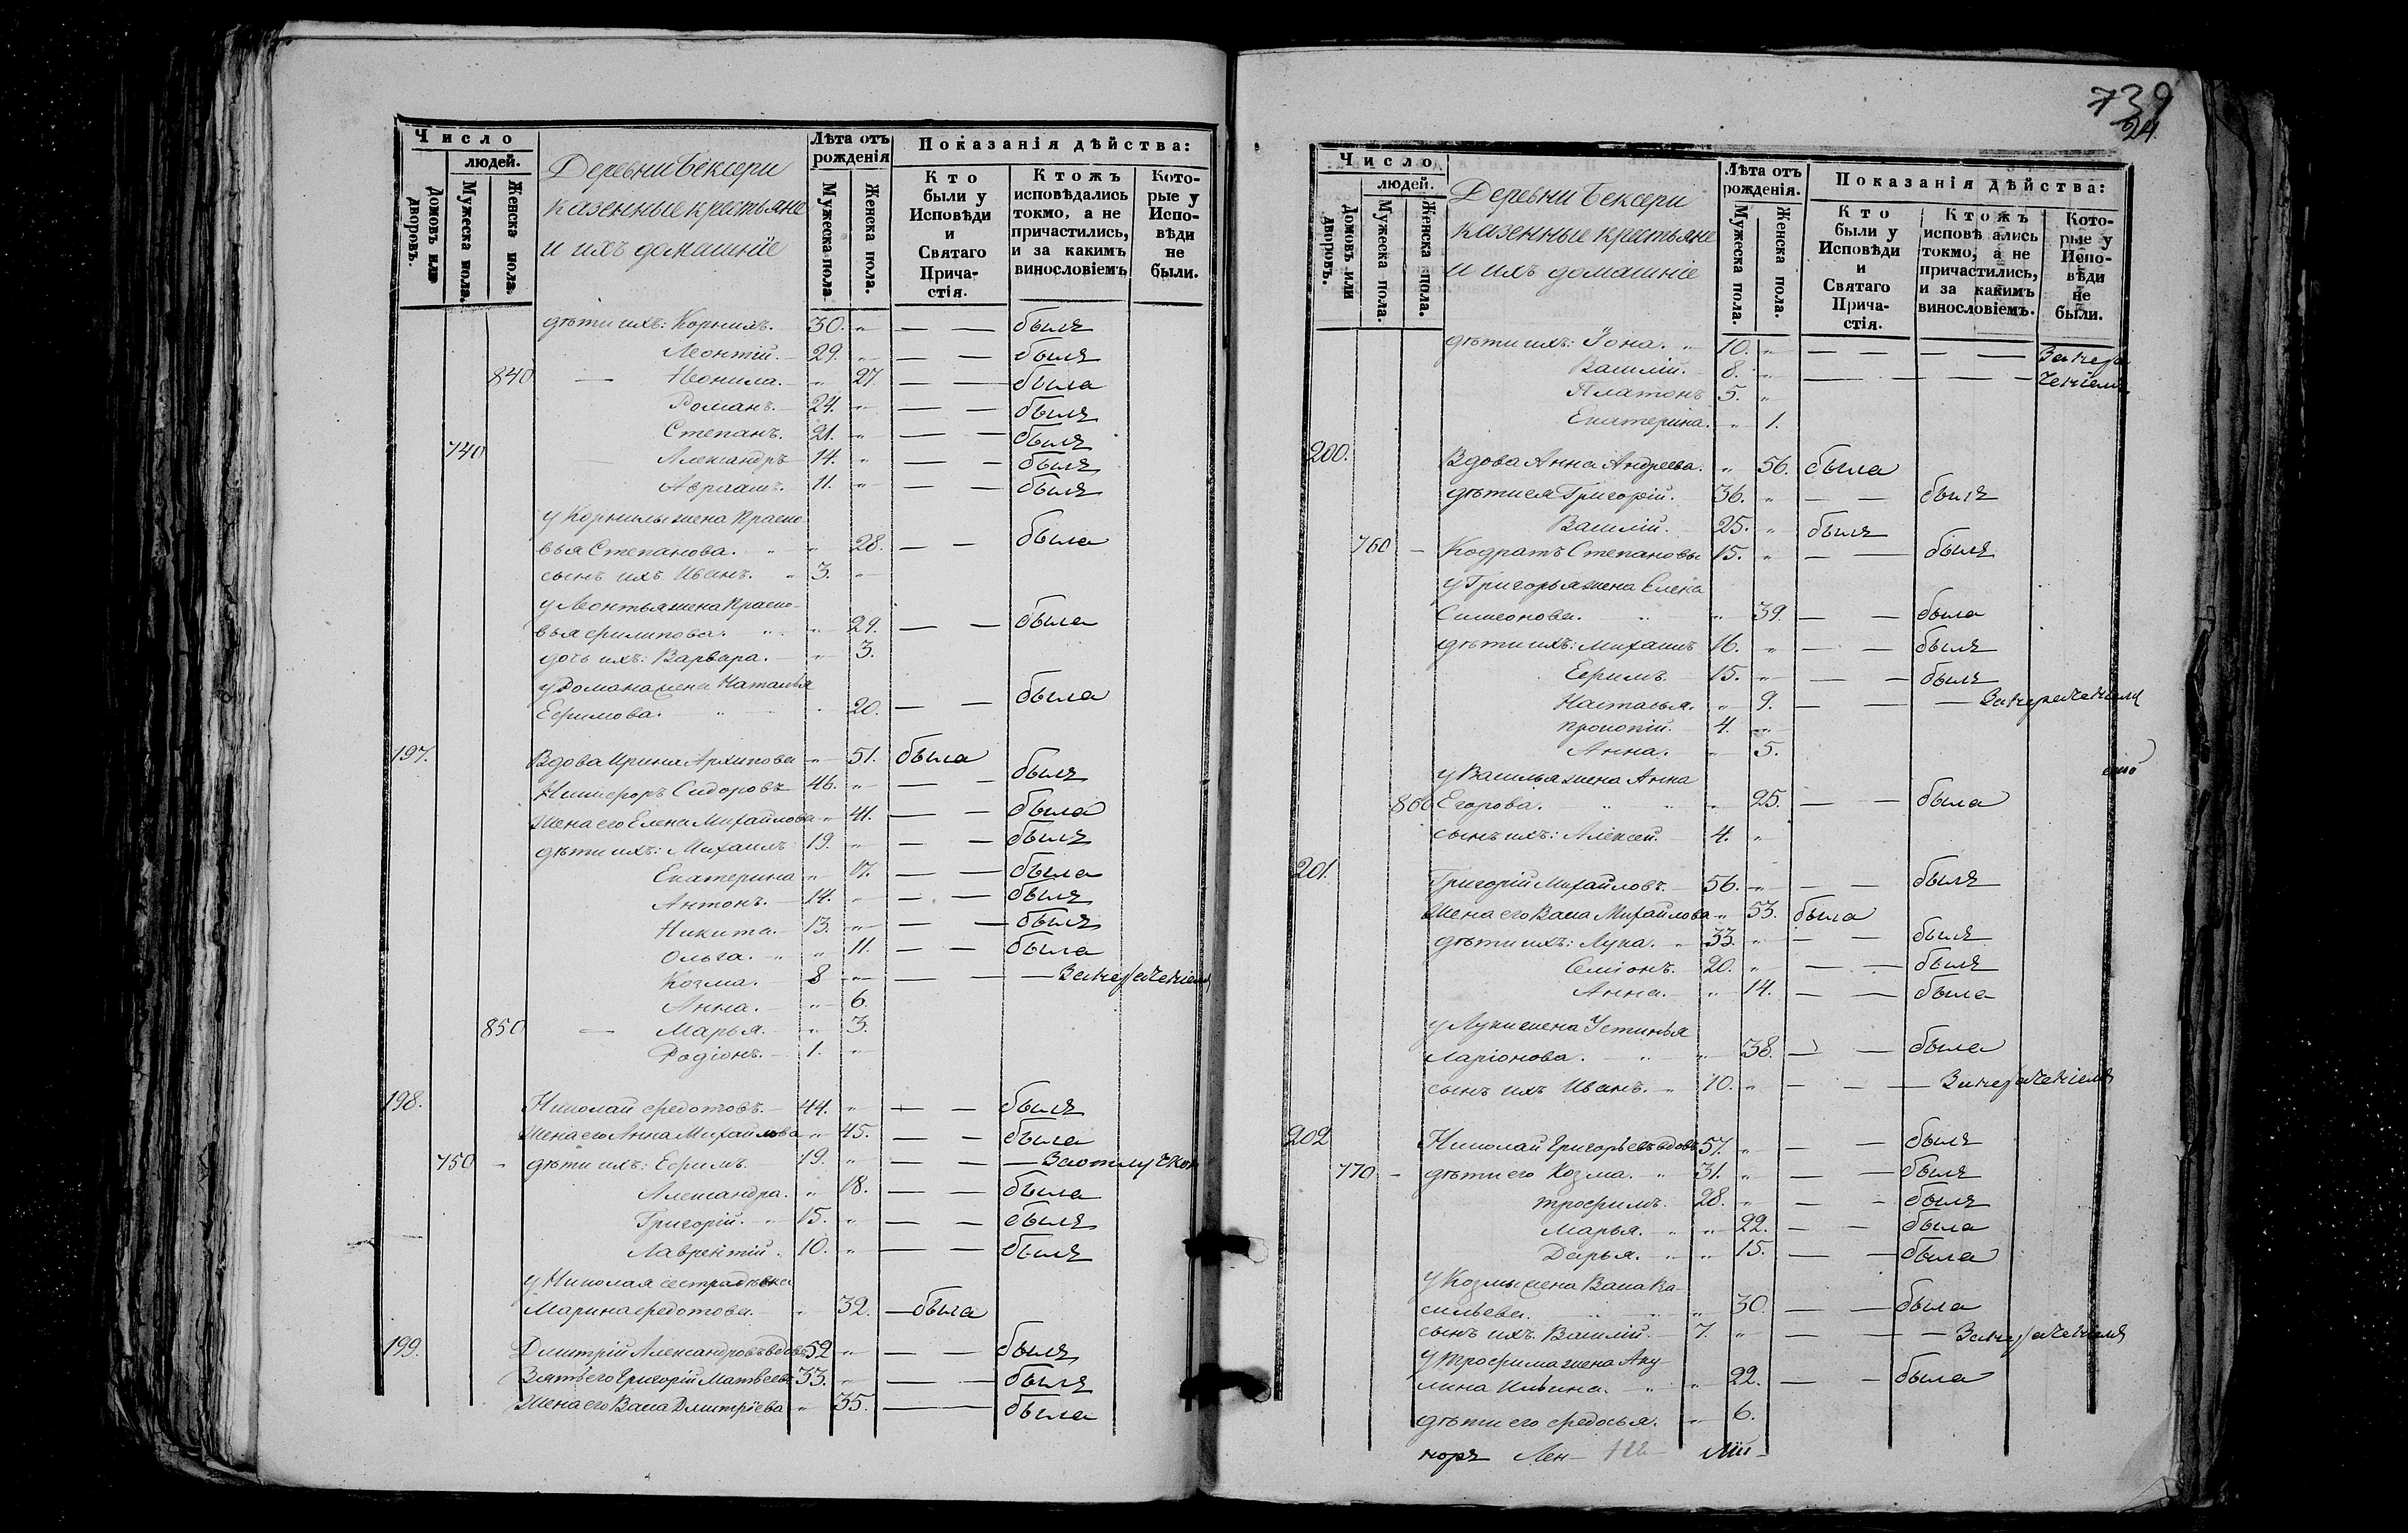 Число
людей.
Домовъ или дворовъ.
Мужеска пола.
Женска пола.
Деревни Бексери
казенные крестьяне
и ихъ домашніе
Лѣта отъ рожденія
Мужеска пола
Женска пола.
Показанія дѣйства:
Кто были у Исповѣди и Святаго Прича-стія.
Ктожъ исповѣдались токмо, а не причастились, и за какимъ винословіемъ
Кото-рые у Испо-вѣди не были.
дѣти ихъ: Корнилъ. 30. „ — — былъ
Леонтій. 29. „ — — былъ
840 — Неонила. „ 27 — — была
Романъ. 24. „ — — былъ
Степанъ. 21. „ — — былъ
740 — Александръ 14. „ — — былъ
Авраамъ. 11. „ — — былъ
у Корнилы жена Праско
вья Степанова. „ 28. — — была
сынъ ихъ Иванъ. 3. „
у Леонтья жена Праско-
вья Филипова. „ 29. — — была
дочь ихъ: Варвара. „ 3.
у Романа жена Наталья
Ефимова. „ 20. — — была
197. Вдова Ирина Архипова „ 51. была
Никифоръ Сидоровъ 46. „ — — былъ
Жена его Елена Михайлова „ 41. — — была
дѣти ихъ: Михаилъ 19. „ — — былъ
Екатерина „ 17. — — была
Антонъ. 14. „ — — былъ
Никита. 13. „ — — былъ
Ольга. „ 11. — — была
Козма. 8 „ — — — Занерачениемъ
Анна. „ 6.
850 — Марья. „ 3.
Родіонъ. 1. „
198. Николай Федотовъ. 44. „ — — былъ
Жена его Анна Михайлова „ 45. — — была
750 - дѣти ихъ: Ефимъ. 19. „ — — — Заотлучкою
Александра. „ 18. — — была
Григорій. 15. „ — — былъ
Лаврентій. 10. „ — — былъ
у Николая сестра дѣвка
Марина Федотова. „ 32. — была
199. Дмитрій Александровъ вдовъ 52 „ — — былъ
Зять его Григорій Матвеевъ 33. „ — — былъ
Жена его Васа Дмитріева „ 35. — — была
739
24.
Число
людей.
Домовъ или дворовъ.
Мужеска пола.
Женска пола.
Деревни Бексери
казенные крестьяне
и ихъ домашніе
Лѣта отъ рожденія.
Мужеска пола.
Женска пола.
Показанія дѣйства:
Кто были у Исповѣди и Святаго Прича-стія.
Ктожъ исповѣ ались токмо, а не причастились, и за какимъ винословіемъ.
Кото-рые у Испо-вѣди не были.
дѣти ихъ: Іона. 10. „ — — — — Занера
Василій. 8. „ — — — — чениемъ
Платонъ 5. „
Екатерина. „ 1.
200. Вдова Анна Андреева. „ 56. была
дѣти ея Григорій. 36. „ — — былъ
Василій. 25. „ былъ
760 — Кодратъ Степановъ 15. „ — — былъ
у Григорья жена Елена
Симеонова. „ 39. — — была
дѣти ихъ: Михаилъ 16. „ — — былъ
Ефимъ. 15. „ — — былъ
Настасья. „ 9. — — — Занерачениемъ
Прокопій. 4. „
Анна. „ 5.
у Василья жена Анна
860 Егорова. „ 25. — — была
сынъ ихъ: Алексей. 4. „
201. Григорій Михайловъ. 56. „ — — былъ
Жена его Васа Михайлова „ 53. была
дѣти ихъ: Лука. 33. „ — — былъ
Семіонъ. 20. „ — — былъ
Анна. „ 14. — — была
у Луки жена Устинья
Ларіонова. „ 38. — — была
сынъ ихъ Иванъ. 10. „ — — — Занерачениемъ
202 Николай Григорьевъ вдовъ 57. „ — — былъ
770 - дѣти его Козма. 31. „ — — былъ
Трофимъ. 28. „ — — былъ
Марья. „ 22. — — была
Дарья. „ 15. — — была
у Козмы жена Васа Ва
сильева. „ 30. — — была
сынъ ихъ. Василій. 7. „ — — — Занерачениемъ
у Трофима жена Аку
лина Ильина. „ 22. — — была
дѣти его Федосья. „ 6.